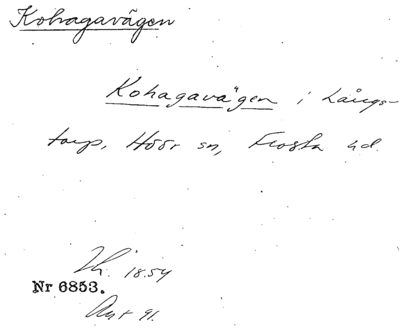 Kohagavägen
Kohagavägen i Långs-
torp, Höör sn, Frosta hd.
18.54
Nr 6853.
Ant 91.